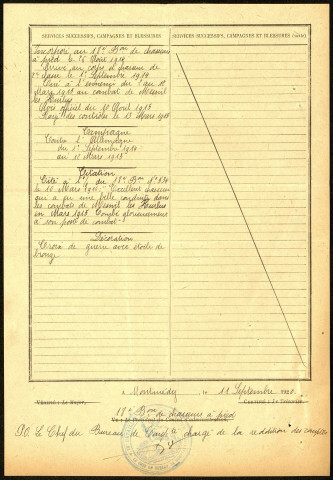 SERVICES SUCCESSIFS, CAMPAGNES ET BLESSURES
SERVICES SUCCESSIFS, CAMPAGNES ET BLESSURES (suite)
Incorporé au 18e Bon de chasseurs
à pied le 15 Août 1914
Arrivé au corps et chasseur de
2e classe le 1er Septembre 1914
Tué à l'ennemi du 9 au 11
Mars 1915 au combat de Mesnil
les Hurlus
Avis officiel du 11 Août 1915
Rayé des contrôles le 13 Mars 1915
Campagne
Contre l'Allemagne
du 1er Septembre 1914
au 11 Mars 1915
Citation
Cité à l' du 18e Bon
du 16 Mars Excellent chasseur
qui a eu une belle conduite dans
les combats de Mesnil les Hurlus
en Mars 1915. Tombé glorieusement
à son poste de combat.
Décoration
Croix de guerre avec étoile de
bronze
A Montmédy, le 11 Septembre
VÉRIFIÉ : Le Major,
CERTIFIÉ : Le Trésorier,
18e Bon de chasseurs à pied
P.O. Le Chef du Bureau de chargé de la reddition des comptes